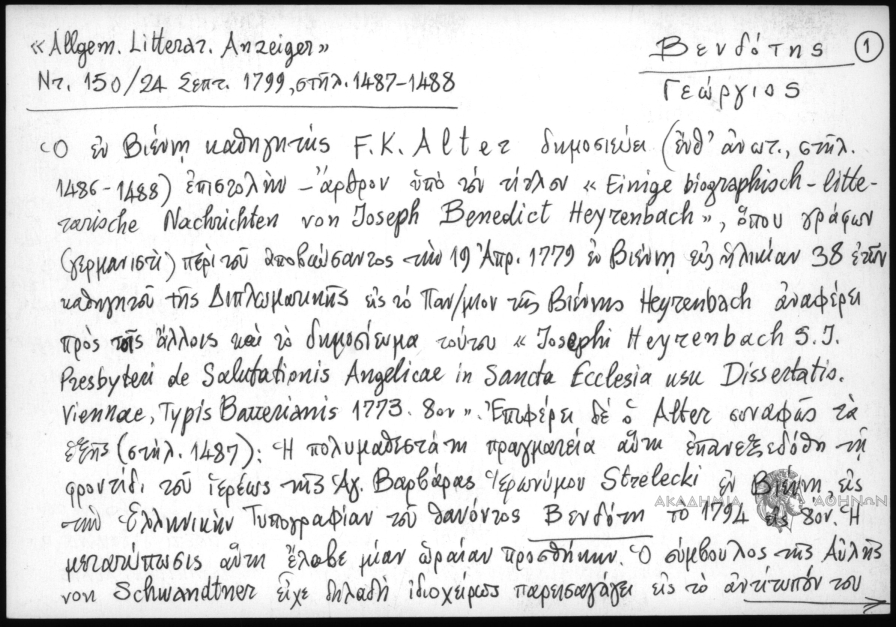 «Allgem. Litterar. Anzeiger»
Nr. 150/24 Σεπτ. 1799, στήλ. 1487-1488
Βενδότης ①
Γεώργιος
Ὁ ἐν Βιέννῃ καθηγητὴς F. K. Alter δημοσιεύει (ἔνθ' ἀνωτ., στήλ.
1486-1488) ἐπιστολὴν – ἄρθρον ὑπὸ τὸν τίτλον «Einige biographisch-litte-
rarische Nachrichten von Joseph Benedict Heyrenbach», ὅπου γράφων
(γερμανιστὶ) περὶ τοῦ ἀποβιώσαντος τὴν 19 Ἀπρ. 1779 ἐν Βιέννῃ εἰς ἡλικίαν 38 ἐτῶν
καθηγητοῦ τῆς Διπλωματικῆς εἰς τὸ Παν/μιον τῆς Βιέννης Heyrenbach ἀναφέρει
πρὸς τοῖς ἄλλοις καὶ τὸ δημοσίευμα τούτου «Josephi Heyrenbach S. J.
Presbyteri de Salutationis Angelicae in Sancta Ecclesia usu Dissertatio.
Viennae, Typis Bauerianis 1773. 8ον». Ἐπιφέρει δὲ ὁ Alter συναφῶς τὰ
ἑξῆς (στήλ. 1487): Ἡ πολυμαθεστάτη πραγματεία αὕτη ἐπανεξεδόθη τῇ
φροντίδι τοῦ ἱερέως τῆς Ἁγ. Βαρβάρας Ἱερωνύμου Strelecki ἐν Βιέννῃ, εἰς
τὴν Ἑλληνικὴν Τυπογραφίαν τοῦ θανόντος Βενδότη τὸ 1794 εἰς 8ον. Ἡ
μετατύπωσις αὕτη ἔλαβε μίαν ὡραίαν προσθήκην. Ὁ σύμβουλος τῆς Αὐλῆς
von Schwandtner εἶχε δηλαδὴ ἰδιοχείρως παρεισαγάγει εἰς τὸ ἀντίτυπόν του
ΑΚΑΔΗΜΙΑ ΑΘΗΝΩΝ